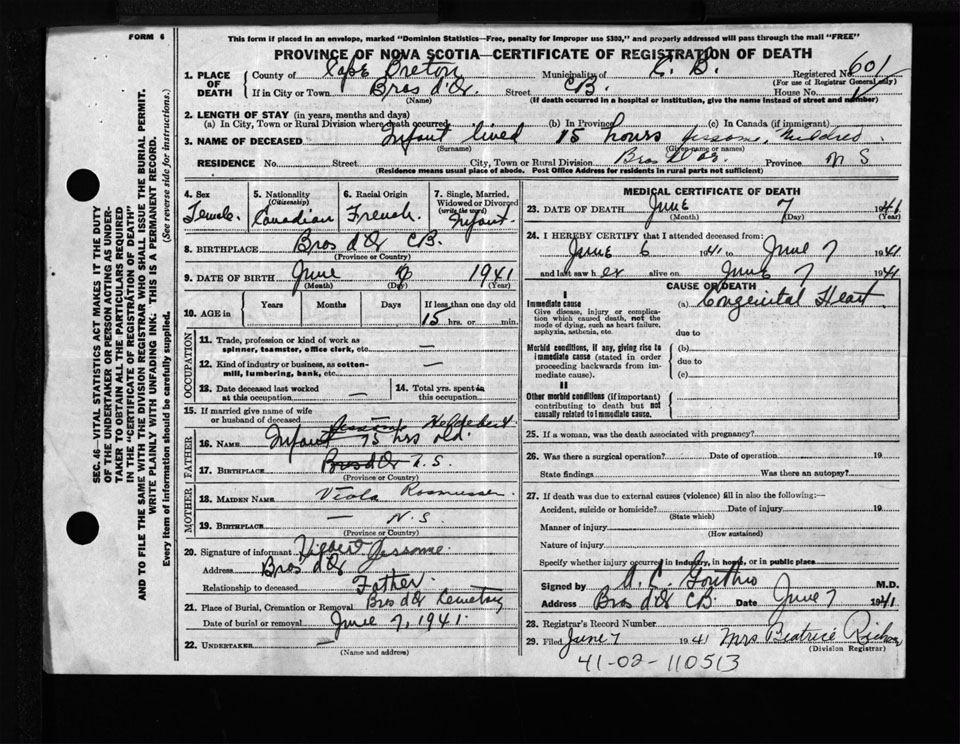 FORM 6
This form if placed in an envelope, marked "Dominion Statistics—Free, penalty for improper use $300," and properly addressed will pass through the mail "FREE"
PROVINCE OF NOVA SCOTIA—CERTIFICATE OF REGISTRATION OF DEATH
SEC. 46—VITAL STATISTICS ACT MAKES IT THE DUTY
OF THE UNDERTAKER OR PERSON ACTING AS UNDER-
TAKER TO OBTAIN ALL THE PARTICULARS REQUIRED
IN THE "CERTIFICATE OF REGISTRATION OF DEATH"
AND TO FILE THE SAME WITH THE DIVISION REGISTRAR WHO SHALL ISSUE THE BURIAL PERMIT.
WRITE PLAINLY WITH UNFADING INK. THIS IS A PERMANENT RECORD.
Every item of information should be carefully supplied. (See reverse side for instructions.)
1. PLACE OF DEATH
County of Cape Breton Municipality of C. B. Registered No. 601
(For use of Registrar General only)
If in City or Town Bras d'Or Street CB. House No.
(Name) (If death occurred in a hospital or institution, give the name instead of street and number)
2. LENGTH OF STAY (in years, months and days)
(a) In City, Town or Rural Division where death occurred (b) In Province (c) In Canada (if immigrant)
3. NAME OF DECEASED Infant lived 15 hours Jessome, Mildred
(Surname) (Given name or names)
RESIDENCE No. Street City, Town or Rural Division Bras D'Or Province N S
(Residence means usual place of abode. Post Office Address for residents in rural parts not sufficient)
4. Sex
Female
5. Nationality
(Citizenship)
Canadian
6. Racial Origin
French
7. Single, Married,
Widowed or Divorced
(write the word)
Infant
8. BIRTHPLACE Bras d'Or CB.
(Province or Country)
9. DATE OF BIRTH June 6 1941
(Month) (Day) (Year)
10. AGE in
Years Months Days If less than one day old
15 hrs. or min.
OCCUPATION
11. Trade, profession or kind of work as
spinner, teamster, office clerk, etc. —
12. Kind of industry or business, as cotton-
mill, lumbering, bank, etc. —
13. Date deceased last worked
at this occupation —
14. Total yrs. spent in
this occupation
15. If married give name of wife
or husband of deceased
FATHER
16. NAME Infant 15 hrs old.
17. BIRTHPLACE Bras d'Or N. S.
(Province or Country)
MOTHER
18. MAIDEN NAME Viola Rasmussen
19. BIRTHPLACE — N.S.
(Province or Country)
20. Signature of informant Jessome
Address Bras d'Or
Relationship to deceased Father
21. Place of Burial, Cremation or Removal Bras d'Or Cemetry
Date of burial or removal June 7, 1941.
22. UNDERTAKER —
(Name and address)
MEDICAL CERTIFICATE OF DEATH
23. DATE OF DEATH June 7 1941
(Month) (Day) (Year)
24. I HEREBY CERTIFY that I attended deceased from:
June 6 1941 to June 7 1941
and last saw her alive on June 7 1941
CAUSE OF DEATH
I
Immediate cause (a) Congenital Heart
Give disease, injury or complica-
tion which caused death, not the
mode of dying, such as heart failure,
asphyxia, asthenia, etc. due to
Morbid conditions, if any, giving rise to
immediate cause (stated in order
proceeding backwards from im-
mediate cause).
(b)
due to
(c)
II
Other morbid conditions (if important)
contributing to death but not
causally related to immediate cause.
25. If a woman, was the death associated with pregnancy?
26. Was there a surgical operation? Date of operation 19
State findings Was there an autopsy?
27. If death was due to external causes (violence) fill in also the following:—
Accident, suicide or homicide? Date of injury 19
(State which)
Manner of injury
(How sustained)
Nature of injury
Specify whether injury occurred in industry, in home, or in public place
Signed by M.D.
Address Bras d'Or CB. Date June 7 1941
28. Registrar's Record Number
29. Filed June 7 1941 Mrs Beatrice
(Division Registrar)
41-02-110513